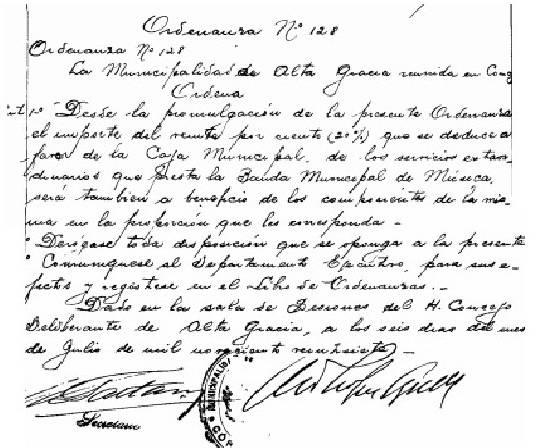 Ordenanza Nº 128
Ordenanza Nº 128
La Municipalidad de Alta Gracia reunida en Conc
Ordena
Art 1º Desde la promulgación de la presente Ordenanza
el importe del veinte por ciento (20%) que se deduce a
favor de la Caja Municipal, de los servicios extraor
dinarios que presta la Banda Municipal de Música,
será tambien a beneficio de los componentes de la mis
ma en la proporción que les corresponda -
Derógase toda disposición que se oponga a la presente
Comuníquese al Departamento Ejecutivo, para sus e-
fectos y regístrese en el Libro de Ordenanzas. -
Dado en la sala de Sesiones del H. Concejo
Deliberante de Alta Gracia, a los seis dias del mes
de Julio de mil novecientos veintisiete -
Secretario